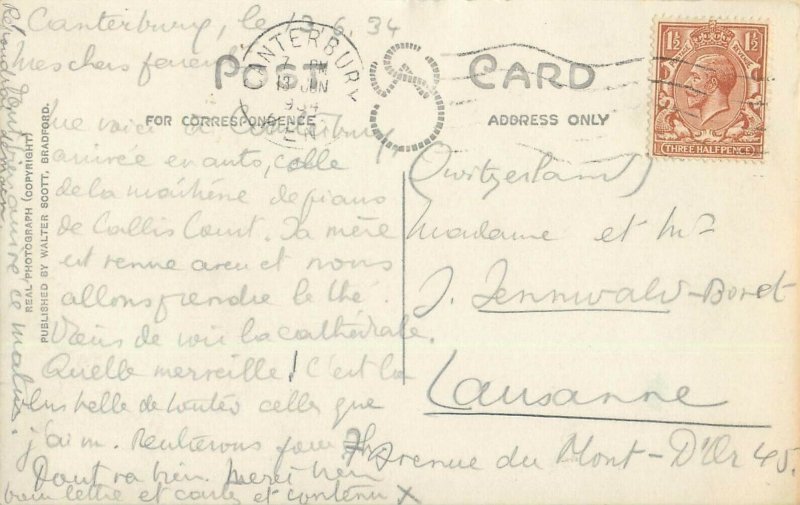 Canterbury, le 13.6.34
Mes chers
POST CARD
FOR CORRESPONDENCE
ADDRESS ONLY
CANTERBURY
7 PM
13 JUN
1934
1½ 1½
THREE HALFPENCE
REAL PHOTOGRAPH (COPYRIGHT)
PUBLISHED BY WALTER SCOTT, BRADFORD.
Me voici à Canterbury
arrivée en auto, celle
de la de piano
de Callis Court. Sa mère
est venue avec et nous
allons prendre le thé.
Viens de voir la cathédrale.
Quelle merveille! C'est la
plus belle de toutes celles que
j'aim. Rentrerons pour
Tout va bien. Merci bien
bonne lettre et cartes et contenu X
ce matin.
(Switzerland)
Madame et Mr
J. Jennwald-Boret
Lausanne
Avenue du Mont-D'Or 45.